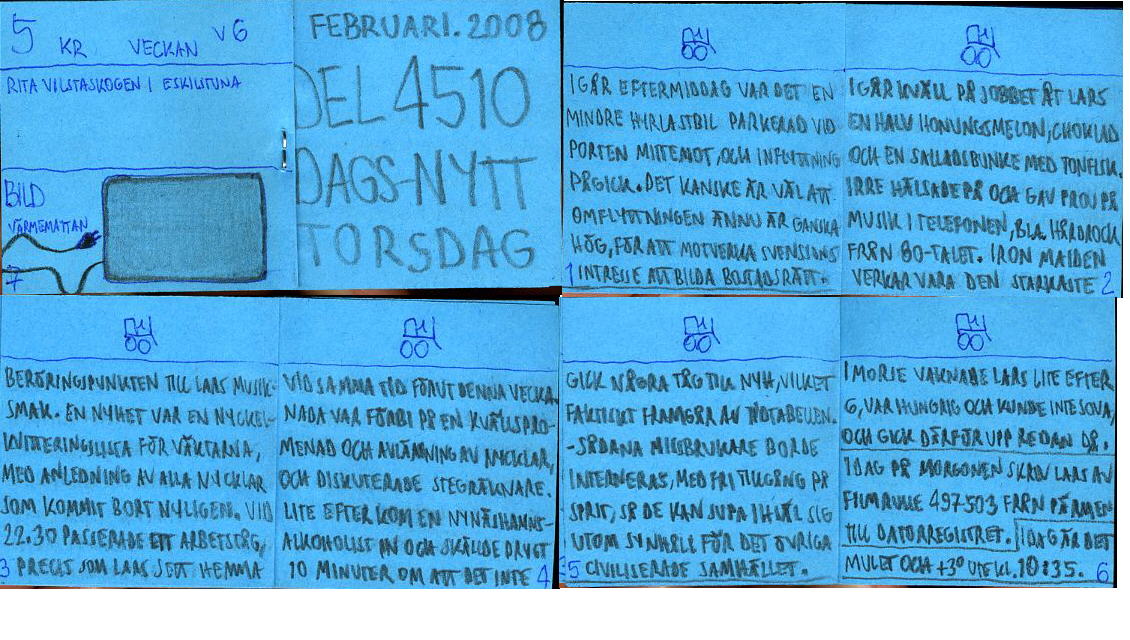 5 KR VECKAN V6
RITA VILSTASKOGEN I ESKILSTUNA
BILD
VÄRMEMATTAN
7
FEBRUARI. 2008
DEL 4510
DAGS-NYTT
TORSDAG
I GÅR EFTERMIDDAG VAR DET EN
MINDRE HYRLASTBIL PARKERAD VID
PORTEN MITTEMOT, OCH INFLYTTNING
PÅGICK. DET KANSKE ÄR VÄL ATT
OMFLYTTNINGEN ÄNNU ÄR GANSKA
HÖG, FÖR ATT MOTVERKA SVENSKNS
1 INTRESSE ATT BILDA BOSTADSRÄTT.
I GÅR KVÄLL PÅ JOBBET ÅT LARS
EN HALV HONUNGSMELON, CHOKLAD
OCH EN SALLADSBUNKE MED TONFISK.
IRRE HÄLSADE PÅ OCH GAV PROV PÅ
MUSIK I TELEFONEN, BL.A. HÅRDROCK
FRÅN 80-TALET. IRON MAIDEN
VERKAR VARA DEN STARKASTE 2
BERÖRINGSPUNKTEN TILL LARS MUSIK-
SMAK. EN NYHET VAR EN NYCKEL-
KVITTERINGSLISTA FÖR VÄKTARNA,
MED ANLEDNING AV ALLA NYCKLAR
SOM KOMMIT BORT NYLIGEN. VID
22.30 PASSERADE ETT ARBETSTÅG,
3 PRECIS SOM LARS SETT HEMMA
VID SAMMA TID FÖRUT DENNA VECKA.
NADA VAR FÖRBI PÅ EN KVÄLLSPRO-
MENAD OCH AVLÄMNING AV NYCKLAR,
OCH DISKUTERADE STEGRÄKNARE.
LITE EFTER KOM EN NYNÄSHAMNS-
ALKOHOLIST IN OCH SKÄLLDE DRYGT
10 MINUTER OM ATT DET INTE 4
GICK NÅGRA TÅG TILL NYH, VILKET
FAKTISKT FRAMGÅR AV TIDTABELLEN.
-SÅDANA MISSBRUKARE BORDE
INTERNERAS, MED FRI TILLGÅNG PÅ
SPRIT, SÅ DE KAN SUPA IHJÄL SIG
UTOM SYNHÅLL FÖR DET ÖVRIGA
5 CIVILISERADE SAMHÄLLET.
I MORSE VAKNADE LARS LITE EFTER
6, VAR HUNGRIG OCH KUNDE INTE SOVA,
OCH GICK DÄRFÖR UPP REDAN DÅ.
IDAG PÅ MORGONEN SKREV LARS AV
FILMRULLE 497-503 FRÅN PÄRMEN
TILL DATORREGISTRET. IDAG ÄR DET
MULET OCH +3° UTE KL. 10:35. 6